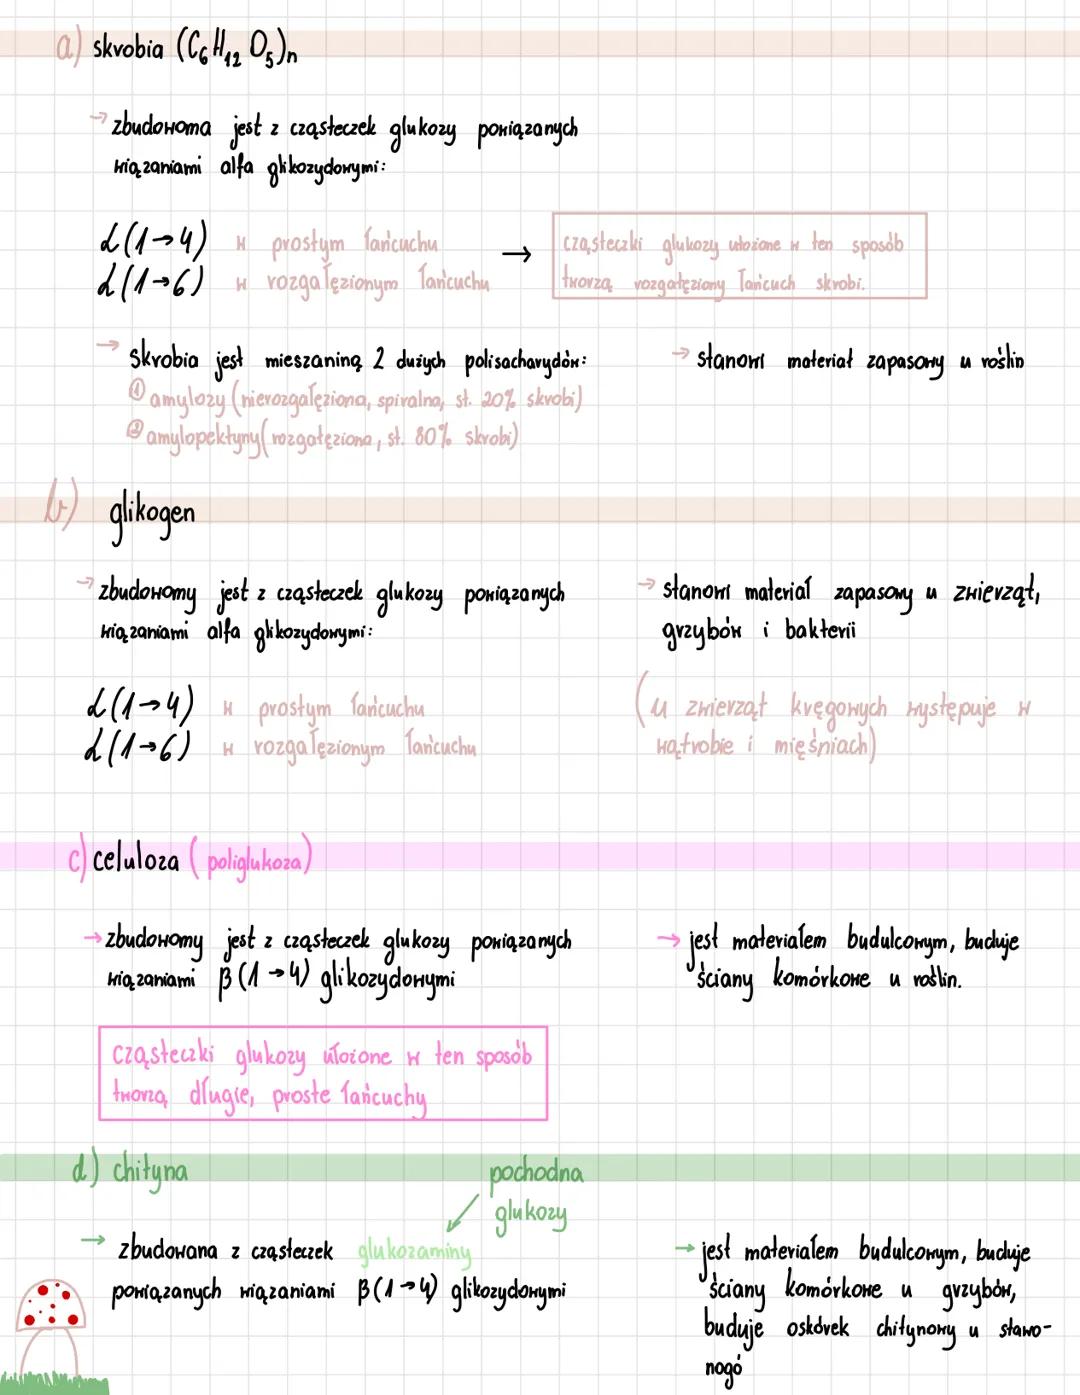 a) skrobia (C₆H₁₂O₅)n
→ zbudowana jest z cząsteczek glukozy powiązanych
wiązaniami alfa glikozydowymi:
α(1→4) w prostym łańcuchu
α(1→6) w rozgałęzionym łańcuchu
→ cząsteczki glukozy ułożone w ten sposób
tworzą rozgałęziony łańcuch skrobi.
→ skrobia jest mieszaniną 2 dużych polisacharydów:
① amylozy (nierozgałęziona, spiralna, st. 20% skrobi)
② amylopektyny (rozgałęziona, st. 80% skrobi)
→ stanowi materiał zapasowy u roślin
b) glikogen
→ zbudowany jest z cząsteczek glukozy powiązanych
wiązaniami alfa glikozydowymi:
α(1→4) w prostym łańcuchu
α(1→6) w rozgałęzionym łańcuchu
→ stanowi materiał zapasowy u zwierząt,
grzybów i bakterii
(u zwierząt kręgowych występuje w
wątrobie i mięśniach)
c) celuloza (poliglukoza)
→ zbudowany jest z cząsteczek glukozy powiązanych
wiązaniami β(1→4) glikozydowymi
cząsteczki glukozy ułożone w ten sposób
tworzą długie, proste łańcuchy
→ jest materiałem budulcowym, buduje
ściany komórkowe u roślin.
d) chityna
pochodna
glukozy
→ zbudowana z cząsteczek glukozaminy
powiązanych wiązaniami β(1→4) glikozydowymi
→ jest materiałem budulcowym, buduje
ściany komórkowe u grzybów,
buduje oskórek chitynowy u stawo-
nogó